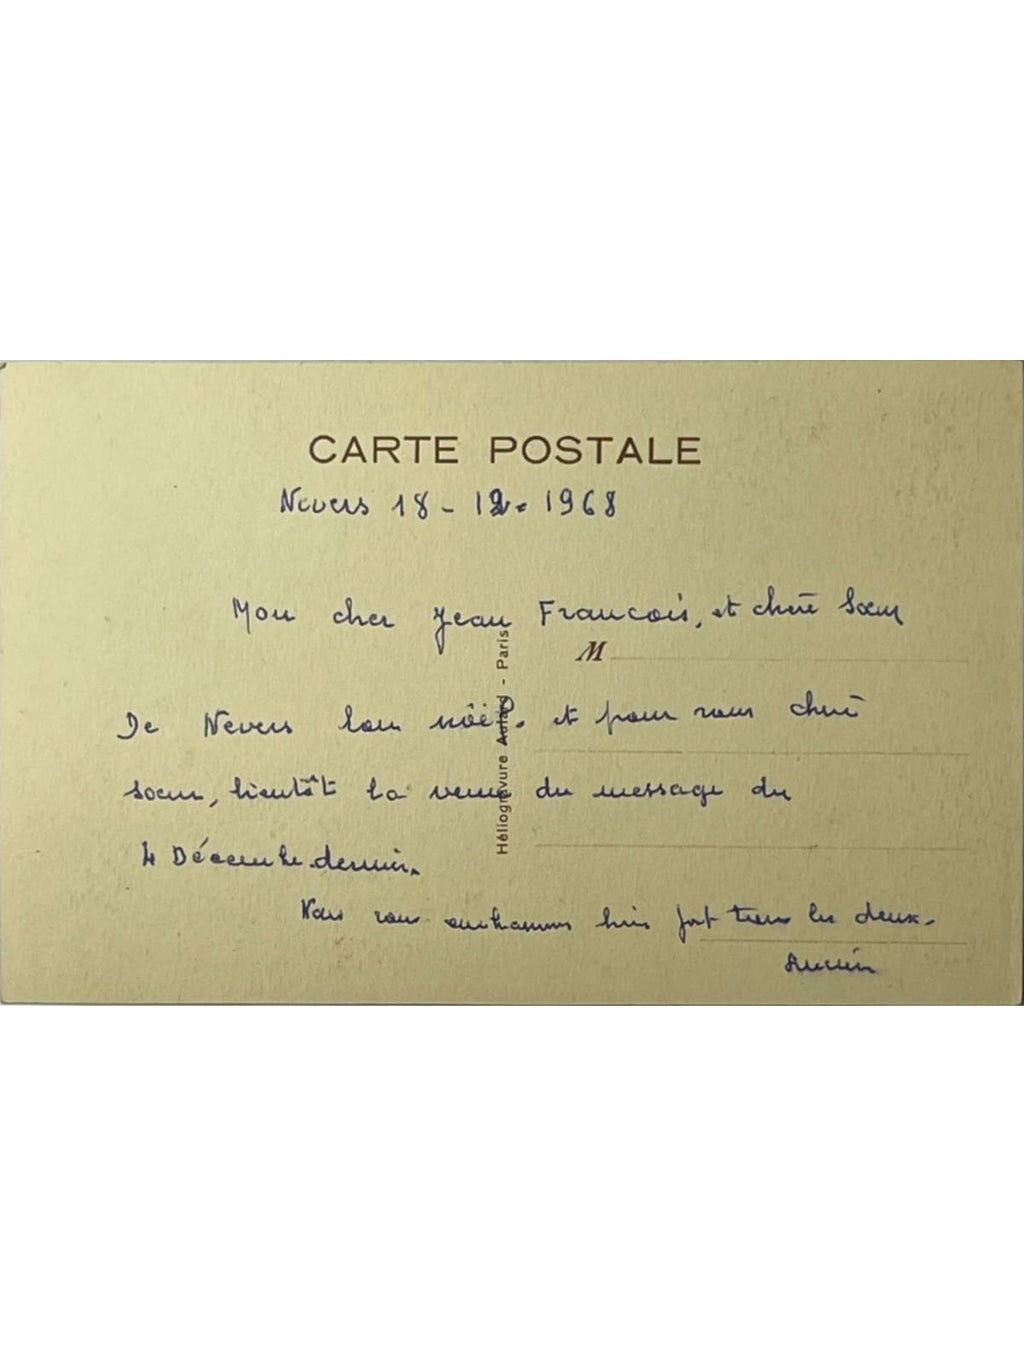 CARTE POSTALE
Nevers 18-12-1968
Mon cher Jean Francois, et chère Sœur
M
De Nevers bon nöël. et pour vous chère
sœur, bientôt la venue du message du
4 Décembre dernier.
Nous vous embrassons bien fort tous les deux.
Héliogravure Aulard - Paris